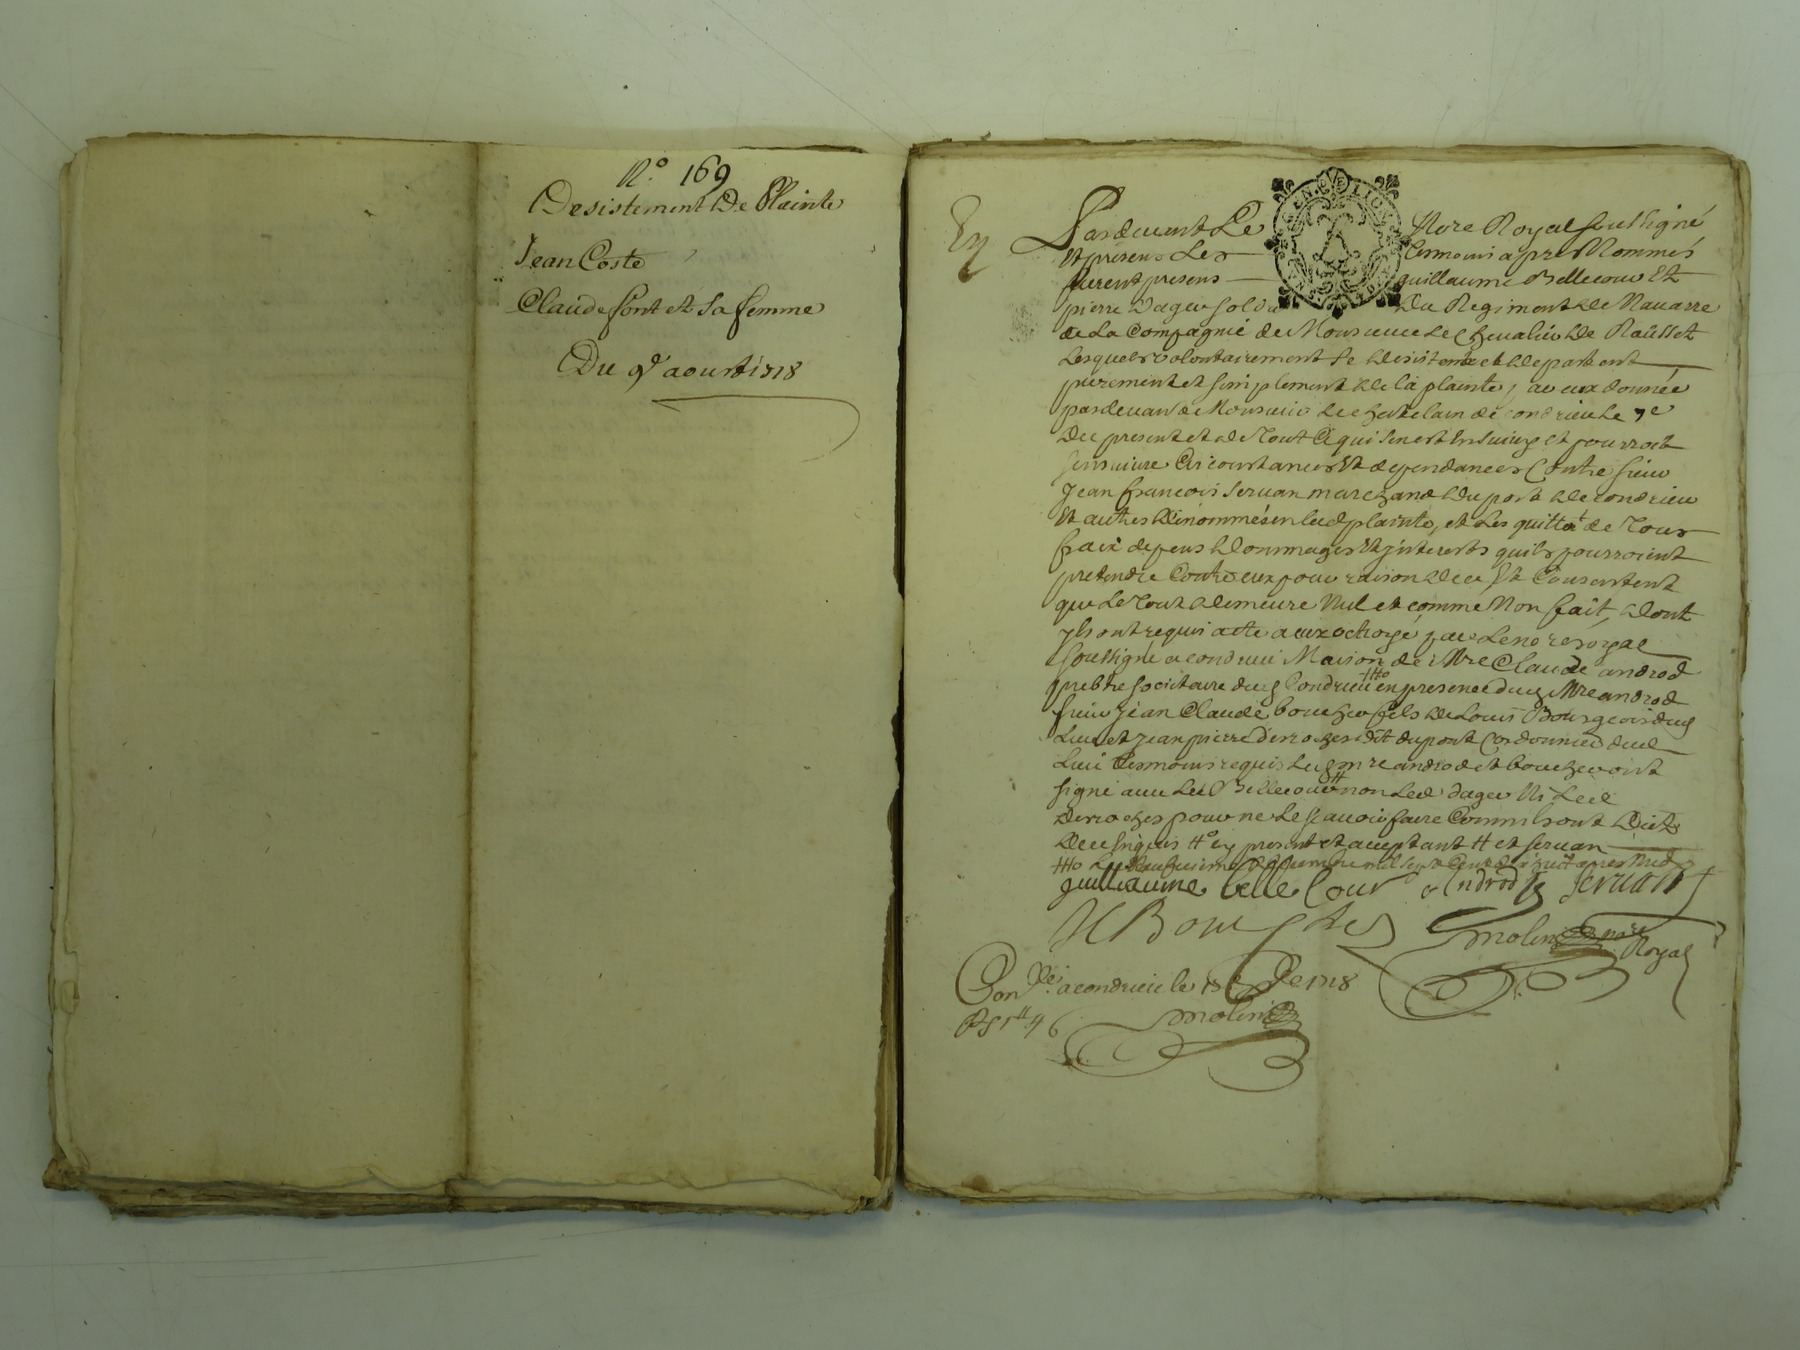 N.o 169
Desistement De Plainte
Jean Coste
Claude font et Sa femme
Du 9e aoust 1718
Ex
Pardeuant Le Nore Royal soussigné
Et presens Les tesmoins apres Nommés
furent presens guillaume Bellecour Et
pierre Dager Du Regiment de Nauarre
de La Compagnie de Monsieur Le Cheualier De Raüsset
Lesquels volontairement Se desistent et departent
purement et simplement de la plainte par eux donnée
pardeuant Monsieur Le chatelain de condrieu Le 7e
Du present et de Tout Ce qui sen est Ensuiuy et pourroit
sensuiure Circonstances Et dependances Contre sieur
Jean francois Seruan marchand du port de condrieu
Et autres dénommés en lad plainte, et Les quittet de Tous
frais depens dommages Et jnterests quils pourroient
pretendre Contre eux pour raison de ce Et Consentent
que Le Tout demeure Nul et comme Non fait, dont
jls ont requis acte a eux octroyé par Le nore royal
soussigné a condrieu Maison de Mre Claude androd
prebtre societaire dud Condrieu en presence dud Mre androd
sieur jean Claude bouchet fils de Louis Bourgeois dud
Lieu et jean pierre derroches dit dupont Cordonnier dud
Lieu tesmoins requis Led mre androd et bouchet ont
signé auec Led Bellecour non Led dager Ni Led
derroches pour ne Le scauoir faire Comme ils ont dict
De ce enquis present et acceptant et seruan
mil sept Cent dix huit apres midy
guillaume belle Cour androd Seruan
JC Bouchet
molin nore Royal
Con.lé a condrieu le 1718
molin